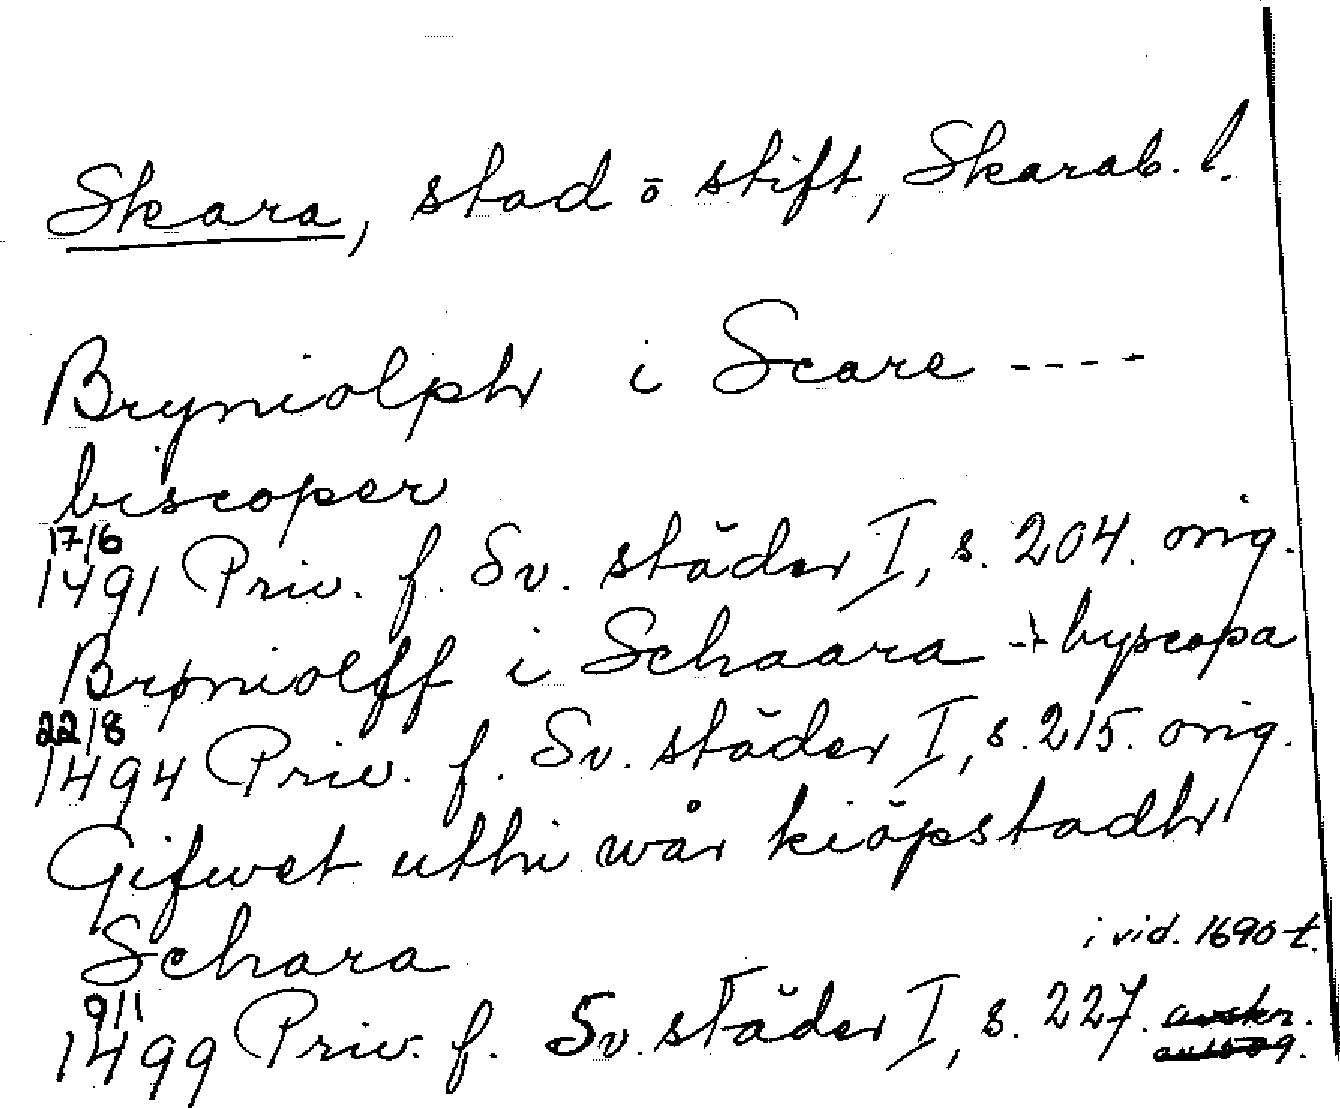 Skara, stad o stift, Skarab. l.
Bryniolph i Scare ----
biscoper
17/6
1491 Priv. f. Sv. städer I, s. 204. orig.
Bryniolff i Schaara - byscopa
22/8
1494 Priv. f. Sv. städer I, s. 215. orig.
Gifwet uthi wår kiöpstadh
Schara
i vid. 1690-t.
9/1
1499 Priv. f. Sv. städer I, s. 227. avskr.